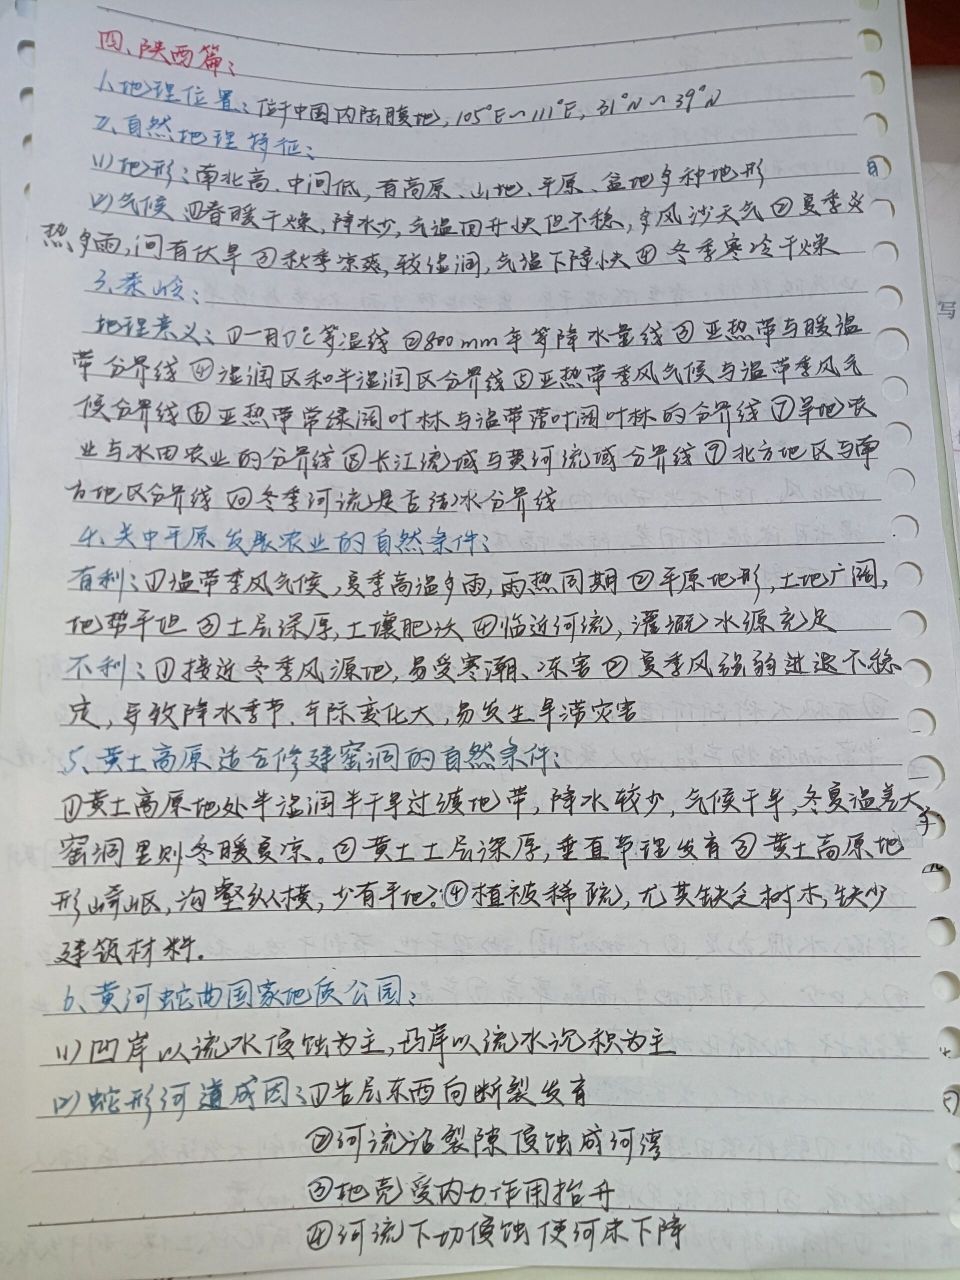 四、陕西篇：
1、地理位置：位于中国内陆腹地，105°E~111°E，31°N~39°N
2、自然地理特征：
(1)地形：南北高、中间低，有高原、山地、平原、盆地多种地形
(2)气候 ①春暖干燥，降水少，气温回升快但不稳，多风沙天气②夏季炎
热多雨，间有伏旱③秋季凉爽，较湿润，气温下降快④冬季寒冷干燥
3、秦岭：
地理意义：①一月0℃等温线②800mm年等降水量线③亚热带与暖温
带分界线④湿润区和半湿润区分界线⑤亚热带季风气候与温带季风气
候分界线⑥亚热带常绿阔叶林与温带落叶阔叶林的分界线⑦旱地农
业与水田农业的分界线⑧长江流域与黄河流域分界线⑨北方地区与南
方地区分界线⑩冬季河流是否结冰分界线
4、关中平原发展农业的自然条件：
有利：①温带季风气候，夏季高温多雨，雨热同期②平原地形，土地广阔，
地势平坦③土层深厚，土壤肥沃④临近河流，灌溉水源充足
不利：①接近冬季风源地，易受寒潮、冻害②夏季风强弱进退不稳
定，导致降水季节、年际变化大，易发生旱涝灾害
5、黄土高原适合修建窑洞的自然条件：
①黄土高原地处半湿润半干旱过渡地带，降水较少，气候干旱，冬夏温差大，
窑洞里则冬暖夏凉。②黄土土层深厚，垂直节理发育③黄土高原地
形崎岖，沟壑纵横，少有平地。④植被稀疏，尤其缺乏树木，缺少
建筑材料。
6、黄河蛇曲国家地质公园：
(1)凹岸以流水侵蚀为主，凸岸以流水沉积为主
(2)蛇形河道成因：①岩层东西向断裂发育
②河流沿裂隙侵蚀成河湾
③地壳受内力作用抬升
④河流下切侵蚀使河床下降